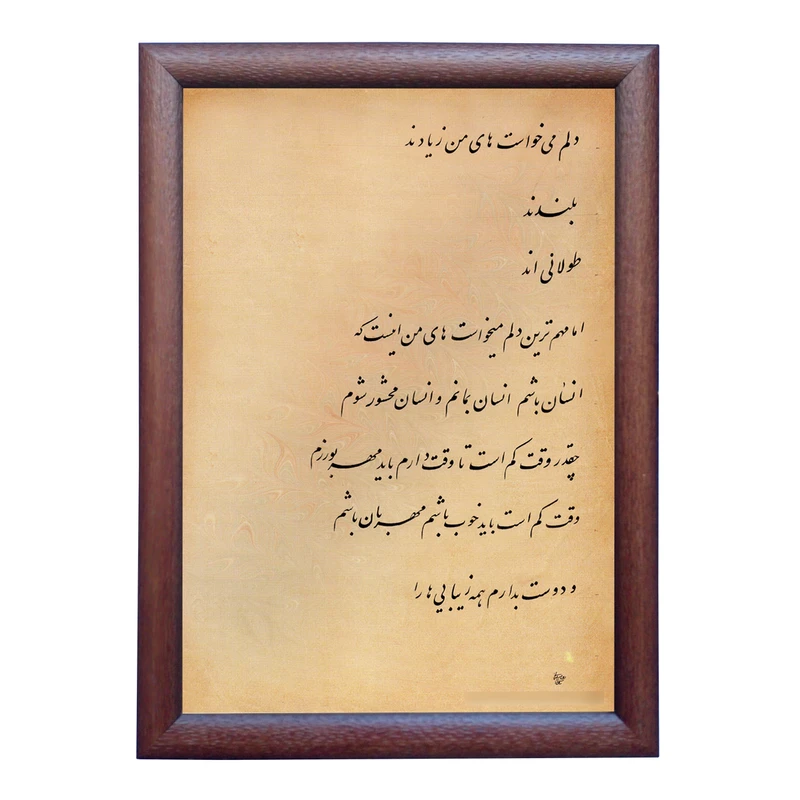 دلم می خواست های من زیادند
بلندند
طولانی اند
اما مهم ترین دلم میخواست های من اینست که
انسان باشم انسان بمانم و انسان محشور شوم
چقدر وقت کم است تا وقت دارم باید مهر بورزم
وقت کم است باید خوب باشم مهربان باشم
و دوست بدارم همه زیبایی ها را